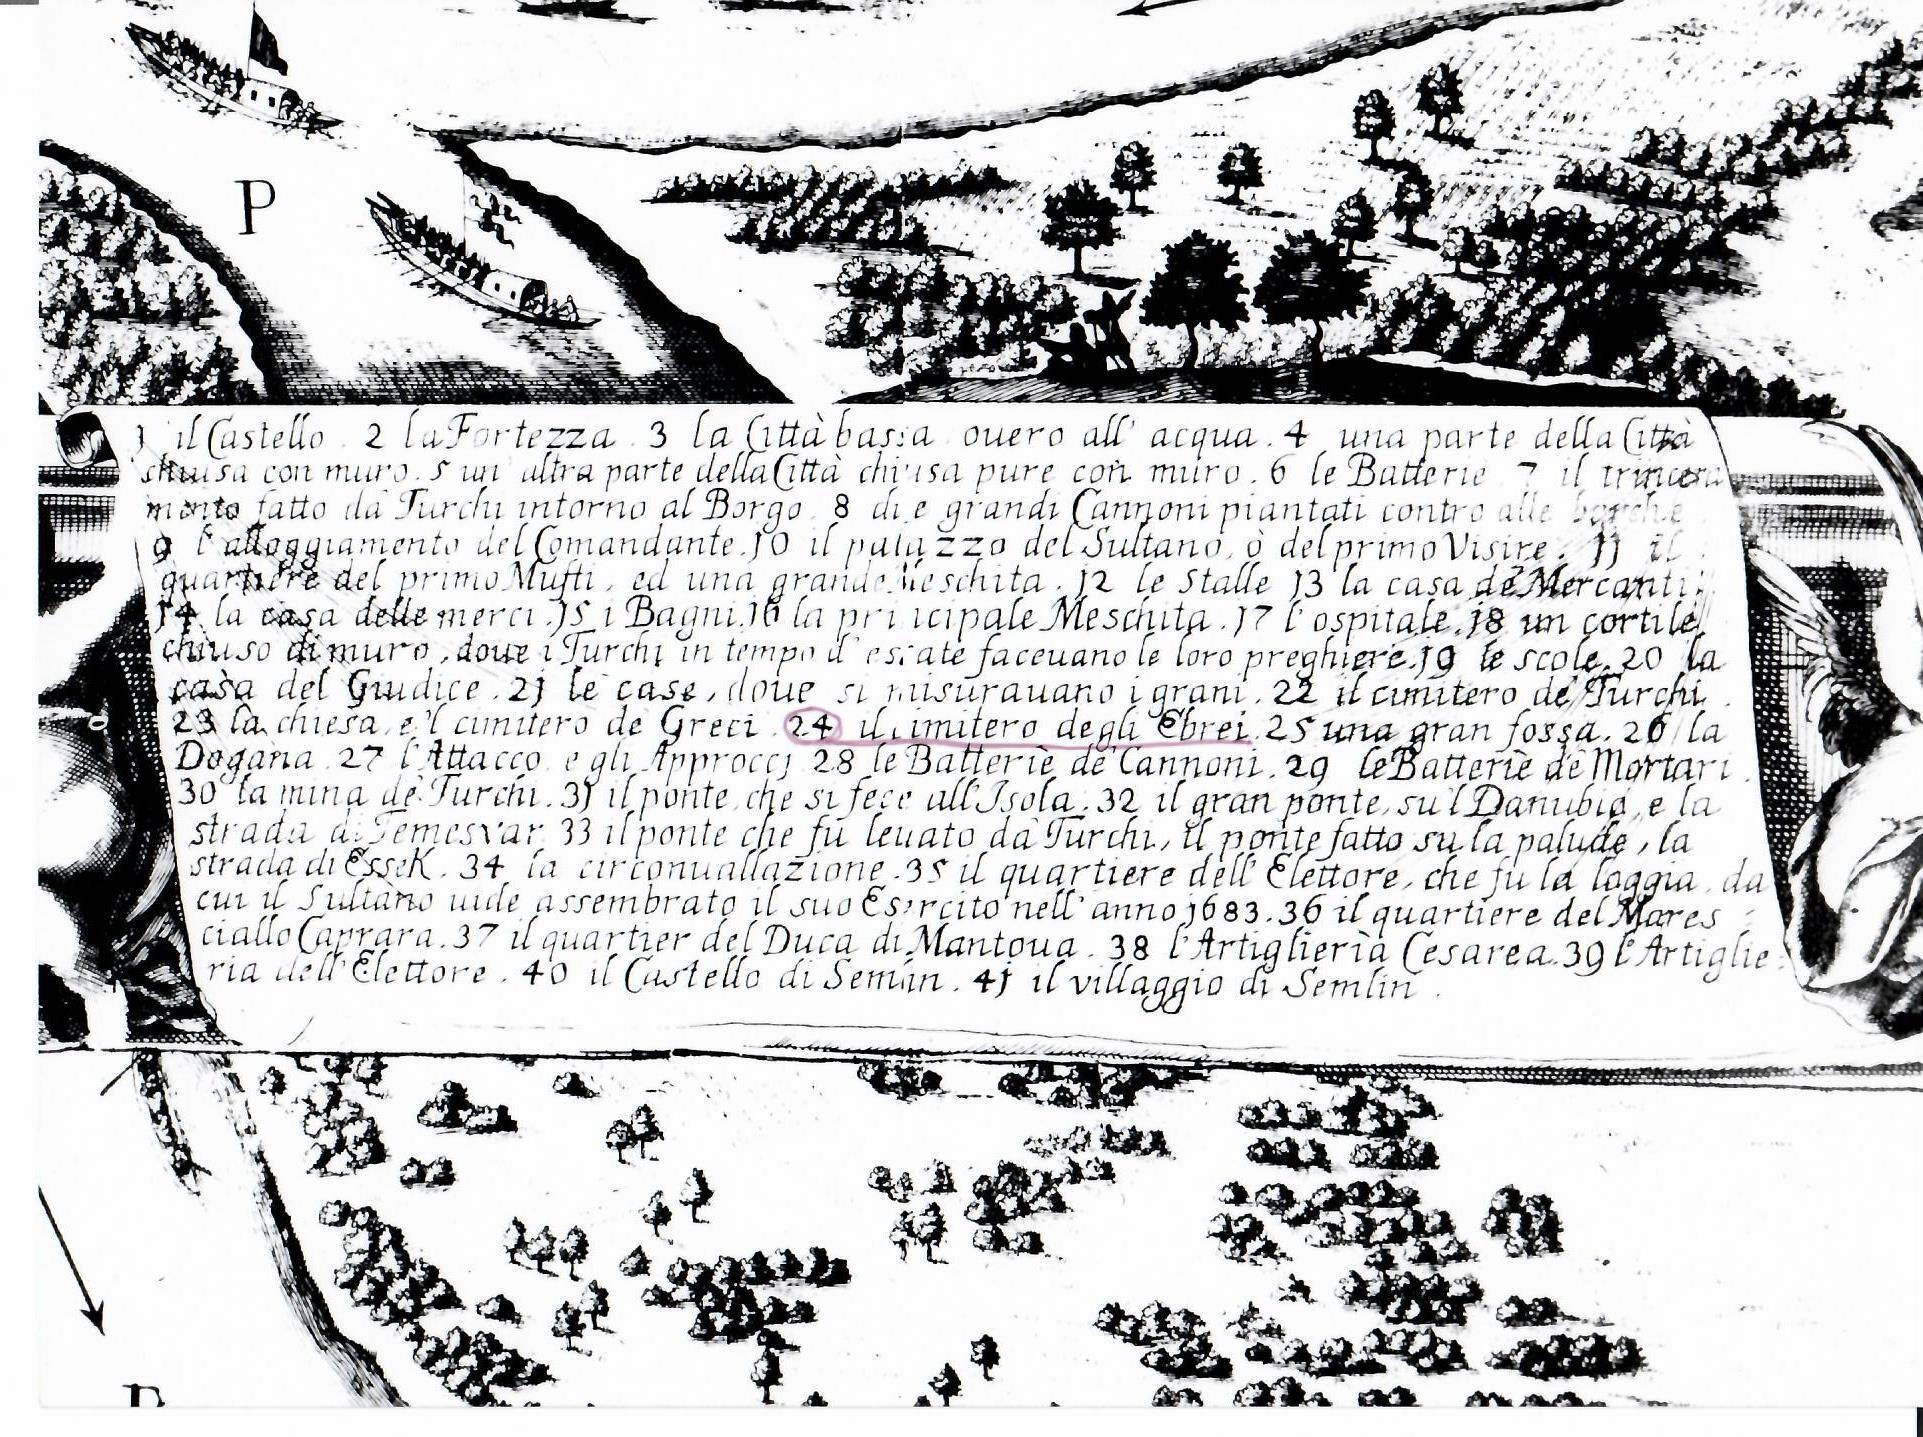 P
1 il Castello . 2 la Fortezza . 3 la Città bassa ouero all' acqua . 4 una parte della Città
chiusa con muro . 5 un altra parte della Città chiusa pure con muro . 6 le Batterie 7 il trincera
mento fatto dà Turchi intorno al Borgo . 8 due grandi Cannoni piantati contro alle barche
9 l'alloggiamento del Comandante . 10 il palazzo del Sultano, ò del primo Visire . 11 il
quartiere del primo Mufti, ed una grande Meschita . 12 le Stalle 13 la casa de' Mercanti
14 la casa delle merci . 15 i Bagni . 16 la principale Meschita . 17 l'ospitale . 18 un cortile
chiuso di muro, doue i Turchi in tempo d'estate faceuano le loro preghiere . 19 le scole . 20 la
casa del Giudice . 21 le case, doue si misurauano i grani . 22 il cimitero de' Turchi .
23 la chiesa, e'l cimitero de Greci . 24 il cimitero degli Ebrei . 25 una gran fossa . 26 la
Dogana . 27 l'Attacco e gli Approccj 28 le Batterie de' Cannoni . 29 le Batterie de' Mortari .
30 la mina de' Turchi . 31 il ponte, che si fece all'Isola . 32 il gran ponte su'l Danubio, e la
strada di Temesvar 33 il ponte che fù leuato dà Turchi, il ponte fatto su la palude, la
strada di Essek . 34 la circonuallazione . 35 il quartiere dell' Elettore, che fu la loggia, da
cui il Sultano uide assembrato il suo Esercito nell' anno 1683 . 36 il quartiere del Mares =
ciallo Caprara . 37 il quartier del Duca di Mantoua . 38 l'Artiglieria Cesarea . 39 l'Artiglie =
ria dell' Elettore . 40 il Castello di Semlin . 41 il villaggio di Semlin .